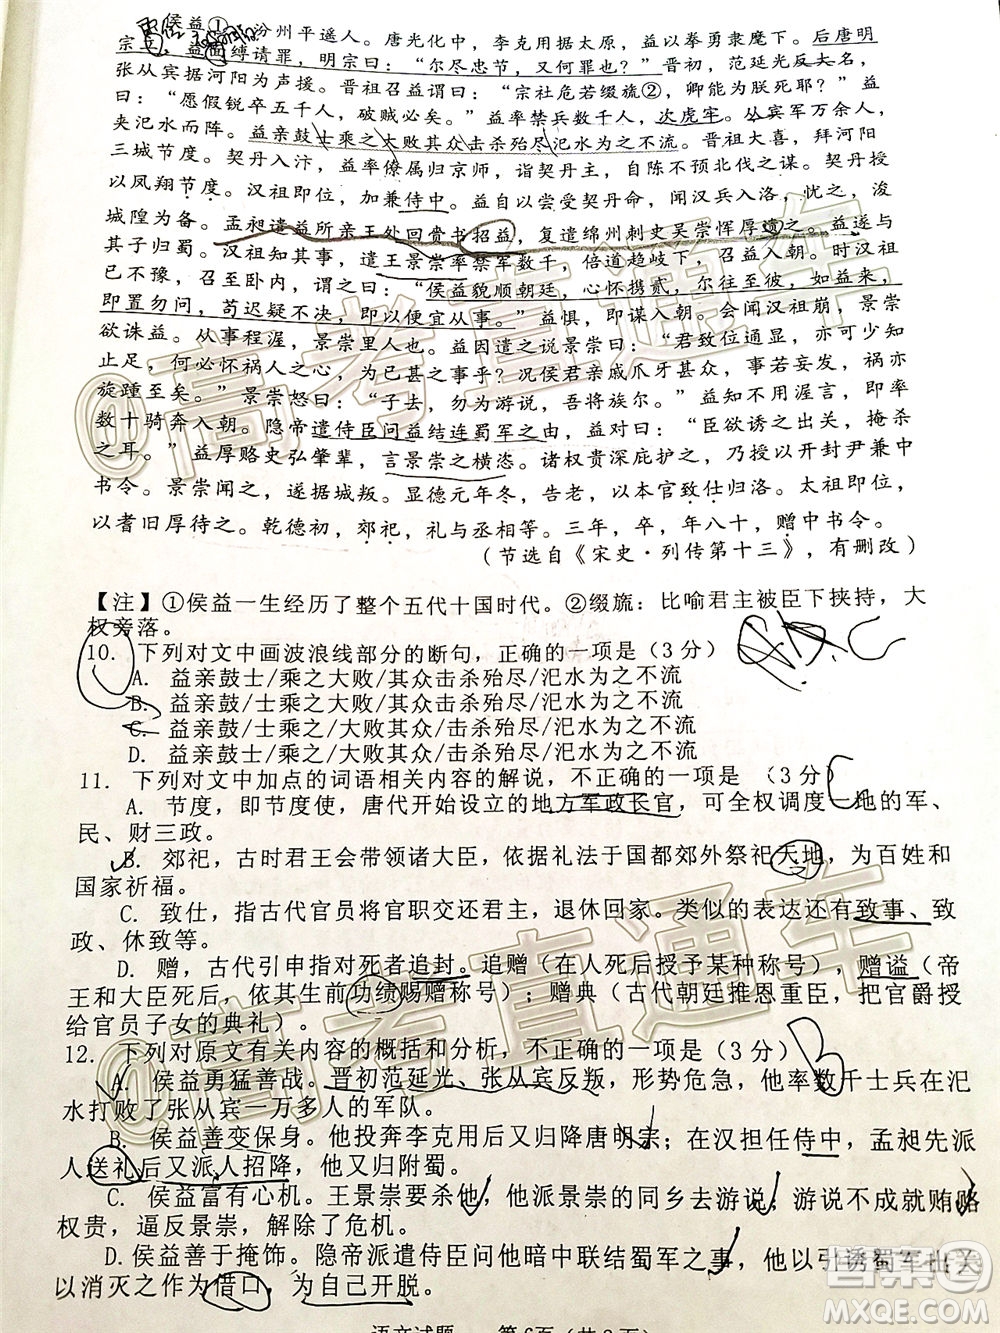 侯益①，汾州平遥人。唐光化中，李克用据太原，益以拳勇隶麾下。后唐明
宗立，益面缚请罪，明宗曰：“尔尽忠节，又何罪也？”晋初，范延光反大名，
张从宾据河阳为声援。晋祖召益谓曰：“宗社危若缀旒②，卿能为朕死耶？”益
曰：“愿假锐卒五千人，破贼必矣。”益率禁兵数千，次虎牢。从宾军万余人，
夹汜水而阵。益亲鼓士乘之大败其众击杀殆尽汜水为之不流。晋祖大喜，拜河阳
三城节度。契丹入汴，益率僚属归京师，诣契丹主，自陈不预北伐之谋。契丹授
以凤翔节度。汉祖即位，加兼侍中。益自以尝受契丹命，闻汉兵入洛，忧之，浚
城隍为备。孟昶遣益所亲王处回赍书招益，复遣绵州刺史吴崇恽厚遗之。益遂与
其子归蜀。汉祖知其事，遣王景崇率禁军数千，倍道趋岐下，侦之。时汉祖
已不豫，召至卧内，谓之曰：“侯益貌顺朝廷，心怀携贰，尔往至彼，如益来，
即置勿问，苟迟疑不决，即以便宜从事。”益惧，即谋入朝。会闻汉祖崩，景崇
欲诛益。从事程渥，景崇里人也。益因遣之说景崇曰：“君致位通显，亦可少知
止足，何必怀祸人之心，为已甚之事乎？况侯君亲戚爪牙甚众，事若妄发，祸亦
旋踵至矣。”景崇怒曰：“子去，勿为游说，吾将族尔。”益知不用渥言，即率
数十骑奔入朝。隐帝遣侍臣问益结连蜀军之由，益对曰：“臣欲诱之出关，掩杀
之耳。”益厚赂史弘肇辈，言景崇之横恣。诸权贵深庇护之，乃授以开封尹兼中
书令。景崇闻之，遂据城叛。显德元年冬，告老，以本官致仕归洛。太祖即位，
以耆旧厚待之。乾德初，郊祀，礼与丞相等。三年，卒，年八十，赠中书令。
（节选自《宋史·列传第十三》，有删改）
【注】①侯益一生经历了整个五代十国时代。②缀旒：比喻君主被臣下挟持，大
权旁落。
10. 下列对文中画波浪线部分的断句，正确的一项是（3分）
A. 益亲鼓士/乘之大败/其众击杀殆尽/汜水为之不流
B. 益亲鼓士/乘之/大败其众/击杀殆尽/汜水为之不流
C. 益亲鼓/士乘之/大败其众/击杀殆尽/汜水为之不流
D. 益亲鼓/士乘之/大败其众击杀殆尽/汜水为之不流
11. 下列对文中加点的词语相关内容的解说，不正确的一项是 （3分）
A. 节度，即节度使，唐代开始设立的地方军政长官，可全权调度 地的军、
民、财三政。
B. 郊祀，古时君王会带领诸大臣，依据礼法于国都郊外祭祀天地，为百姓和
国家祈福。
C. 致仕，指古代官员将官职交还君主，退休回家。类似的表达还有致事、致
政、休致等。
D. 赠，古代引申指对死者追封。追赠（在人死后授予某种称号），赠谥（帝
王和大臣死后，依其生前功绩赐赠称号）；赠典（古代朝廷推恩重臣，把官爵授
给官员子女的典礼）。
12. 下列对原文有关内容的概括和分析，不正确的一项是（3分）
A. 侯益勇猛善战。晋初范延光、张从宾反叛，形势危急，他率数千士兵在汜
水打败了张从宾一万多人的军队。
B. 侯益善变保身。他投奔李克用后又归降唐明宗；在汉担任侍中，孟昶先派
人送礼后又派人招降，他又归附蜀。
C. 侯益富有心机。王景崇要杀他，他派景崇的同乡去游说；游说不成就贿赂
权贵，逼反景崇，解除了危机。
D.侯益善于掩饰。隐帝派遣侍臣问他暗中联结蜀军之事，他以引诱蜀军出关
以消灭之作为借口，为自己开脱。
语文试题 第6页（共8页）
@高考直通车
@高考直通车
答案圈
MXQE.COM